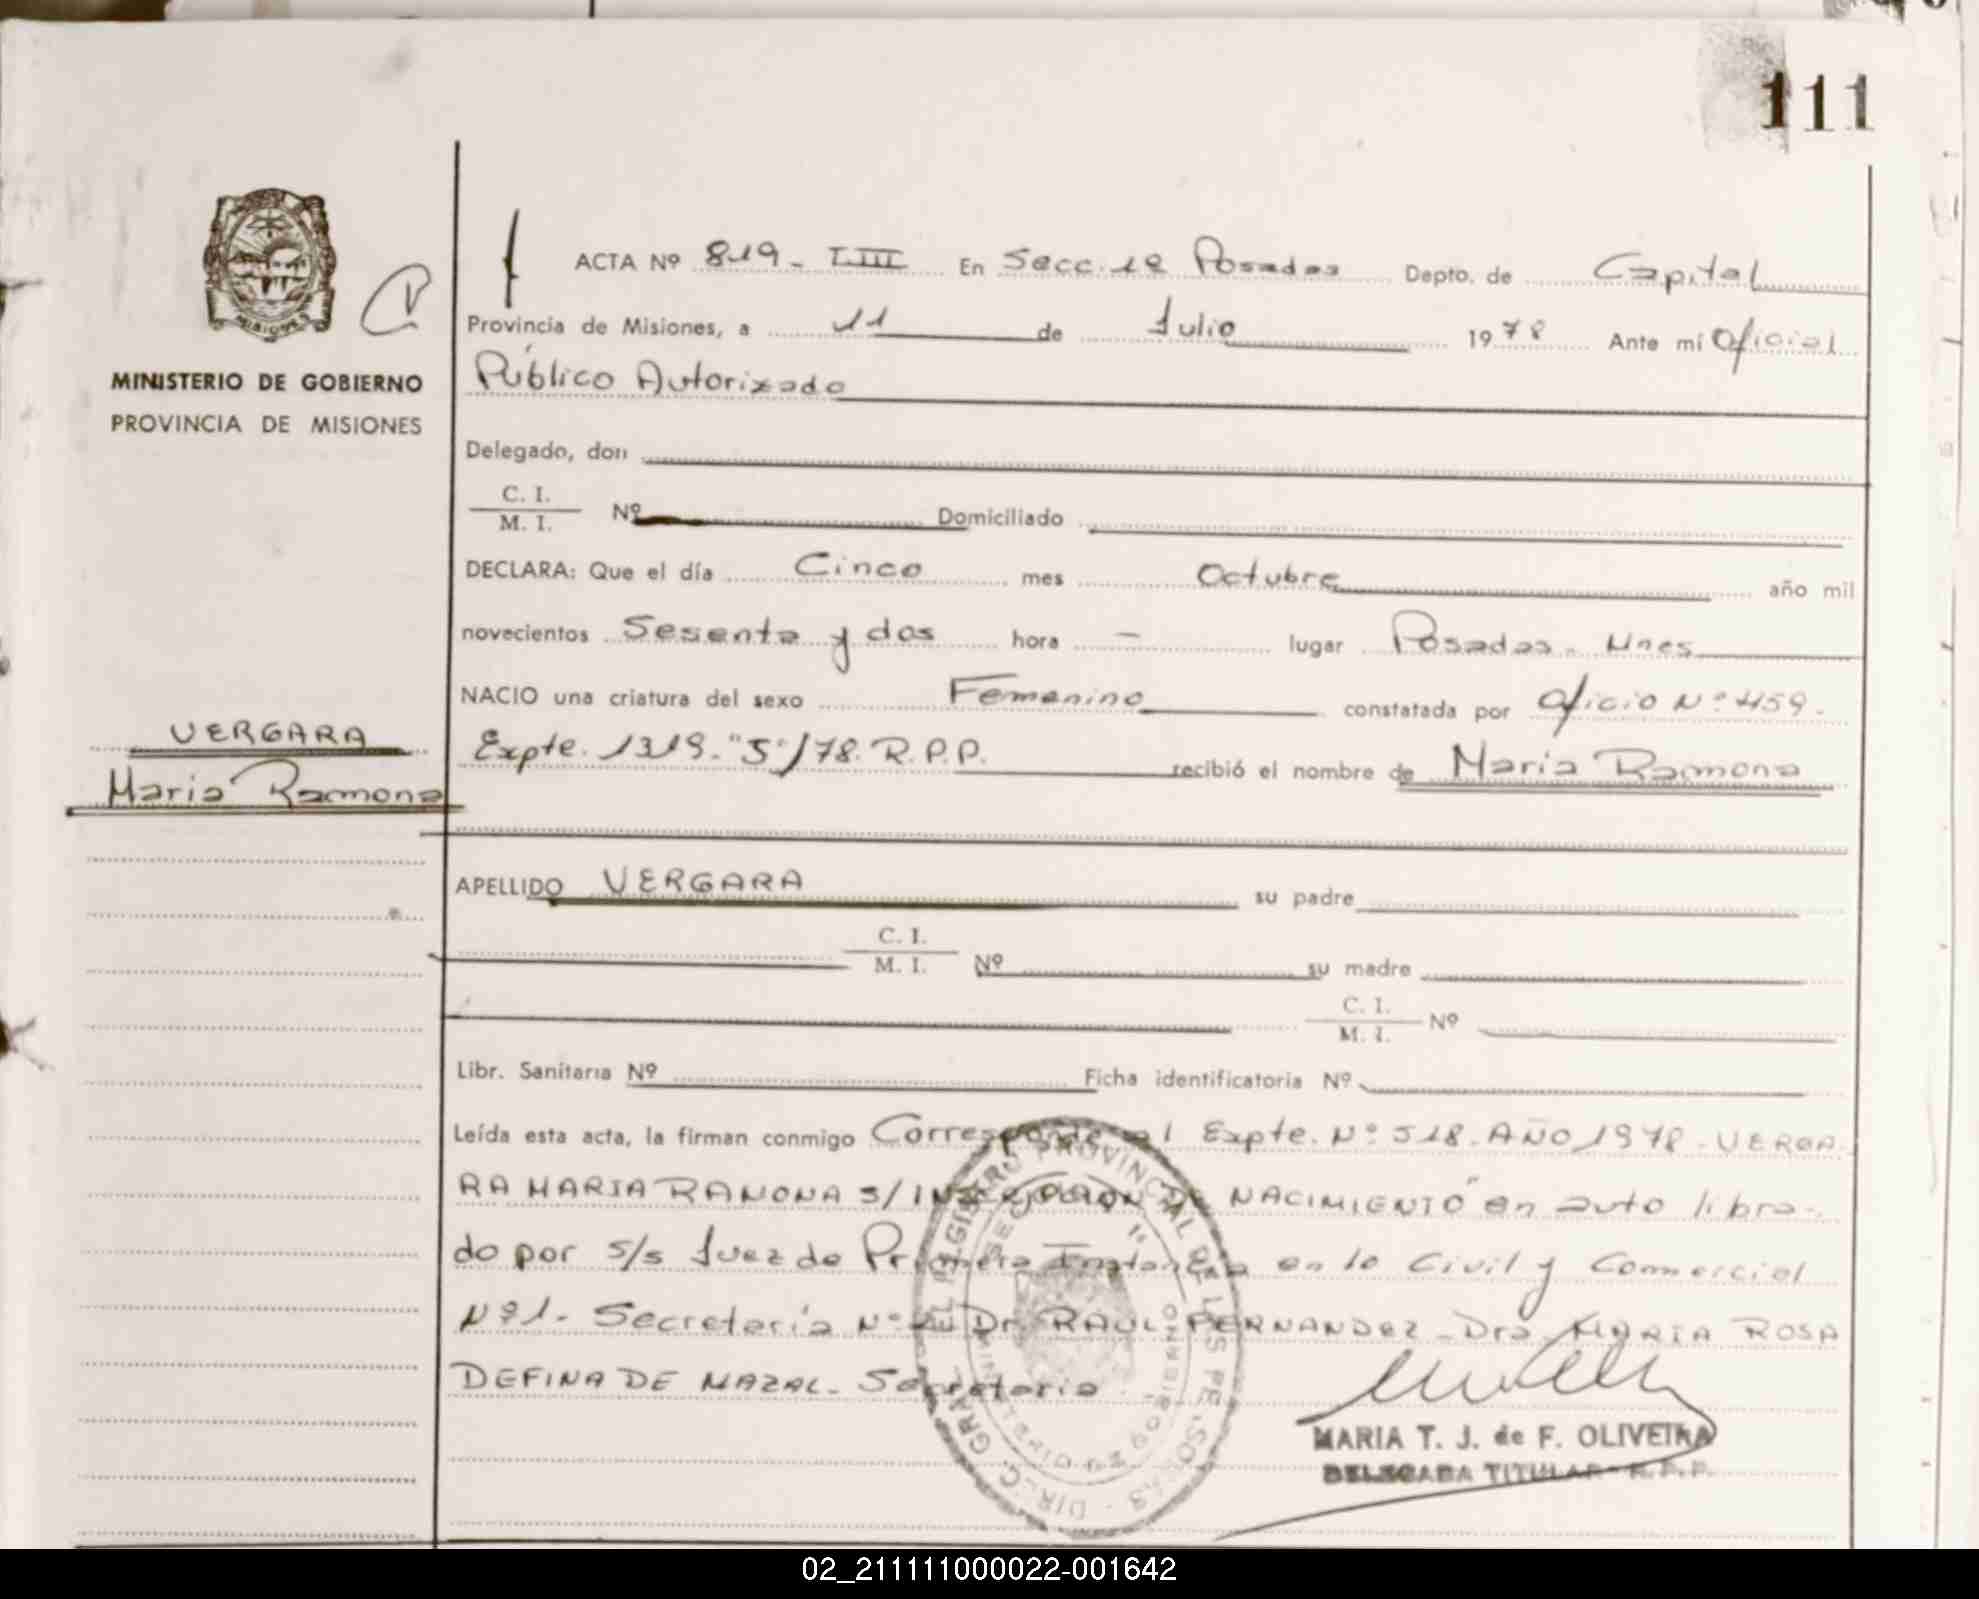 111
ACTA Nº 819 - T.III En Secc. 1ª Posadas Depto. de Capital
Provincia de Misiones, a 11 de Julio 1978 Ante mí Oficial
Público Autorizado
MINISTERIO DE GOBIERNO
PROVINCIA DE MISIONES
Delegado, don
C. I.
M. I. Nº Domiciliado
DECLARA: Que el día Cinco mes Octubre año mil
novecientos Sesenta y dos hora — lugar Posadas - Mnes
NACIO una criatura del sexo Femenino constatada por Oficio Nº 459.
VERGARA
Maria Ramona
Expte. 1319-"S"/78. R.P.P. recibió el nombre de Maria Ramona
APELLIDO VERGARA su padre
C. I.
M. I. Nº su madre
C. I.
M. I. Nº
Libr. Sanitaria Nº Ficha identificatoria Nº
Leída esta acta, la firman conmigo Corresponde al Expte. Nº 518. AÑO 1978 - VERGA
RA MARIA RAMONA S/INSCRIPCION DE NACIMIENTO" en auto libra-
do por S/S Juez de Primera Instancia en lo Civil y Commercial
Nº 1- Secretaria Nº Dr. RAUL FERNANDEZ - Dra. MARIA ROSA
DEFINA DE MAZAL - Secretaria.
MARIA T. J. de F. OLIVEIRA
DELEGADA TITULAR - R.P.P.
02_211111000022-001642